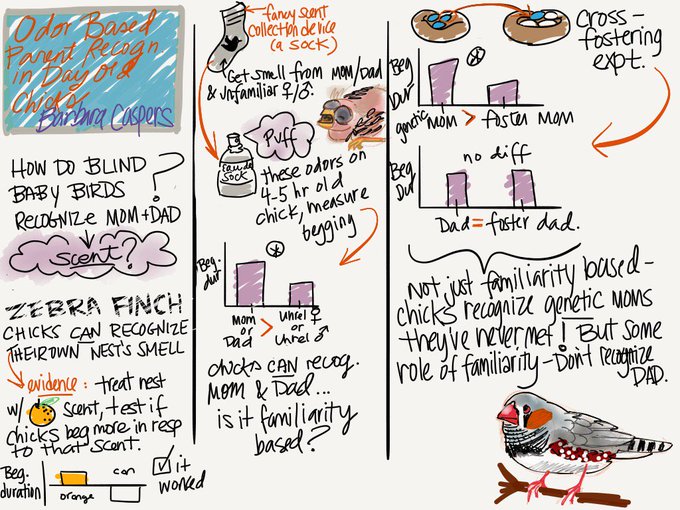 Odor Based
Parent Recogn
in Day old
Chicks
Barbara Caspers
HOW DO BLIND
BABY BIRDS
RECOGNIZE MOM+DAD
?
scent?
ZEBRA FINCH
CHICKS CAN RECOGNIZE
THEIR OWN NEST'S SMELL
evidence: treat nest
w/ scent, test if
chicks beg more in resp
to that scent.
Beg.
duration
orange
con
it
worked
fancy scent
collection device
(a sock)
Get smell from MOM/DAD
& unfamiliar ♀/♂.
Puff
eau de
sock
these odors on
4-5 hr old
chick, measure
begging
Beg.
dur
*
Mom
or
Dad
>
Unrel ♀
or
Unrel ♂
chicks CAN recog.
MOM & Dad...
is it familiarity
based?
Cross-
fostering
expt.
Beg
Dur
*
genetic MOM > foster MOM
Beg
Dur
no diff
Dad = foster dad.
Not just familiarity based-
chicks recognize genetic moms
they've never met! But some
role of familiarity-Don't recognize
DAD.